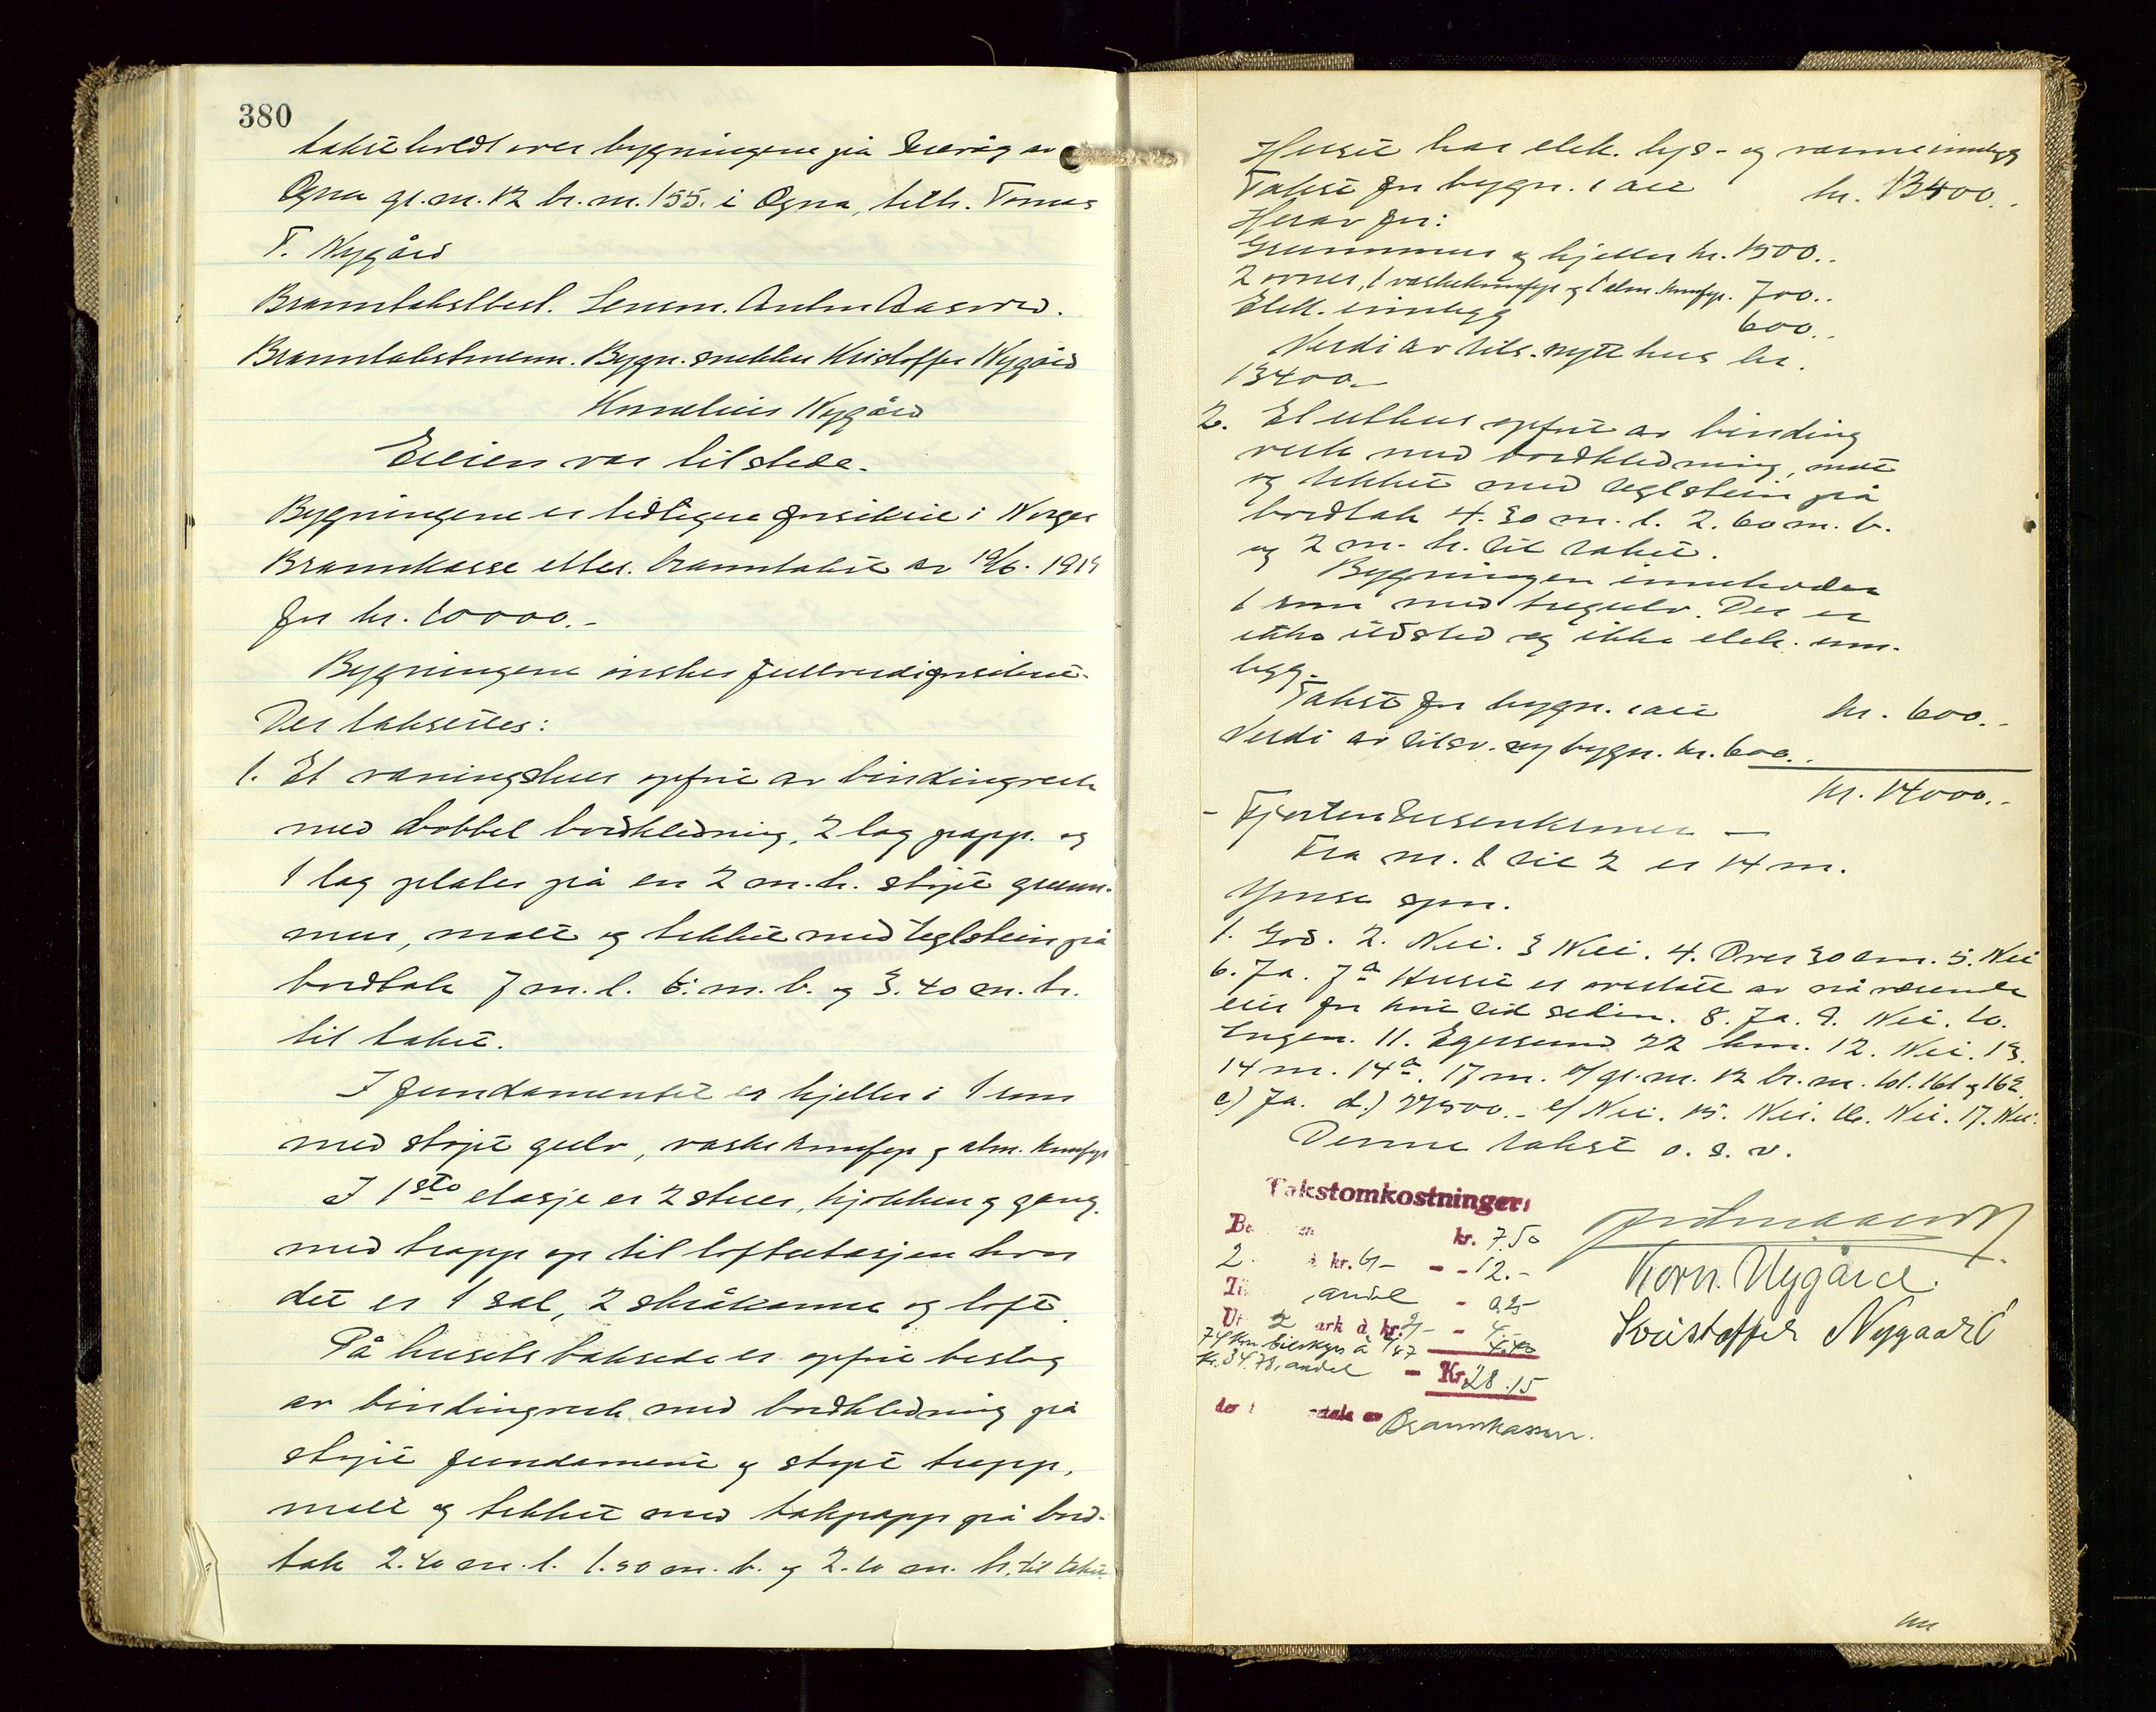 380
takst holdt over bygningene på av
Ogna gr.nr. 12 br.nr. 155. i Ogna, tilh. Tomas
T. Nygård
Branntakstbest. Lensm. Anton Aasvod.
Branntakstmenn. Bygn.snekker Kristoffer Nygård
Kornelius Nygård
Eieren var tilstede.
Bygningene er tidligere forsikret i Norges
Brannkasse etter branntakst av 19/6. 1919
for kr. 10000.-
Bygningene ønskes fullverdiforsikret.
Der taksertes:
1. Et våningshus opført av bindingverk
med dobbel bordkledning, 2 lag papp. og
1 lag plater på en 2 m.h. støpt grunn-
mur, malt og tekket med teglstein på
bordtak 7 m.l. 6. m.b. og 3.40 m.h.
til taket.
I fundamentet er kjeller i 1 rum
med støpt gulv, vaskekomfyr og alm. komfyr
I 1ste etasje er 2 stuer, kjøkken og gang.
med trapp op til loftsetasjen hvor
det er 1 sal, 2 skråkamre og loft.
På husets bakside er opført beslag
av bindingverk med bordkledning på
støpt fundament og støpt trapp,
malt og tekket med takpapp på bord-
tak 2.40 m.l. 1.50 m.b. og 2.10 m.h. til taket.
Huset har elek. lys- og varmeinnlegg
Takst for bygn. i alt kr. 13400..
Herav for:
Grunnmur og kjeller kr. 1500..
2 ovner, 1 vaskekomfyr og 1 alm. komfyr. 700..
Elek. innlegg 600..
Verdi av tils. nytt hus kr.
13400.-
2. Et uthus opført av binding
verk med bordkledning, malt
og tekket med teglstein på
bordtak 4.30 m.l. 2.60 m.b.
og 2 m.h. til taket.
Bygningen inneholder
1 rum med tregulv. Der er
ikke ildsted og ikke elek. inn-
legg.
Takst for bygn. i alt kr. 600.-
Verdi av tilsv. ny bygn. kr. 600..
kr. 14000.-
- Fjortentusenkroner -
Fra nr. 1 til 2 er 14 m.
Ymse spm.
1. God. 2. Nei. 3 Nei. 4. Over 30 cm. 5. Nei
6. Ja. 7a Huset er overlatt av nåværende
eier for kort tid siden. 8. Ja. 9. Nei. 10.
Ingen. 11. Egersund 22 km. 12. Nei. 13.
14 m. 14a. 17 m. b/ gr.nr. 12 br.nr. 101. 161 og 162
c) Ja. d.) 27500.- e/ Nei. 15. Nei. 16. Nei. 17. Nei.
Denne takst o.s.v.
Takstomkostninger:
kr. 7.50
2 à kr. 6,- - - 12.-
andel - 0,25
2 ark à kr. 2,- - 4,-
74 km. bilskyss à 0,47 4.40
kr. 34.78, andel - Kr. 28.15
betales av Brannkassen.
Korn. Nygård.
Kristoffer Nygaard